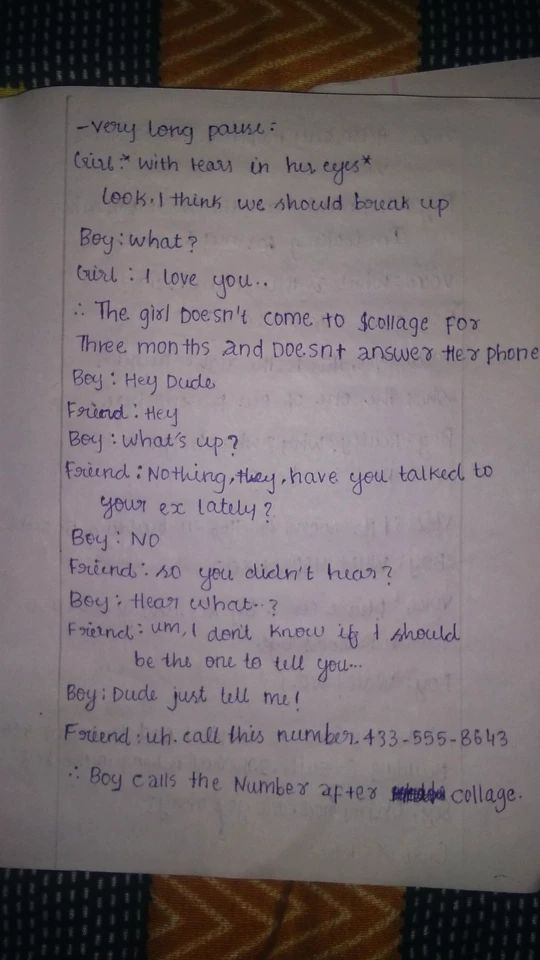 -very long pause:
Girl:* with tears in her eyes*
Look, I think we should break up
Boy: what?
Girl : I love you..
∴ The girl Doesn't come to $collage For
Three months and Doesnt answer Her phone
Boy : Hey Dude
Friend : Hey
Boy : what's up?
Friend : Nothing, hey, have you talked to
your ex lately?
Boy : NO
Friend : so you didn't hear?
Boy : Hear what..?
Friend : um, I don't know if I should
be the one to tell you...
Boy : Dude just tell me!
Friend : uh. call this number. 433-555-8643
∴ Boy calls the Number after collage.